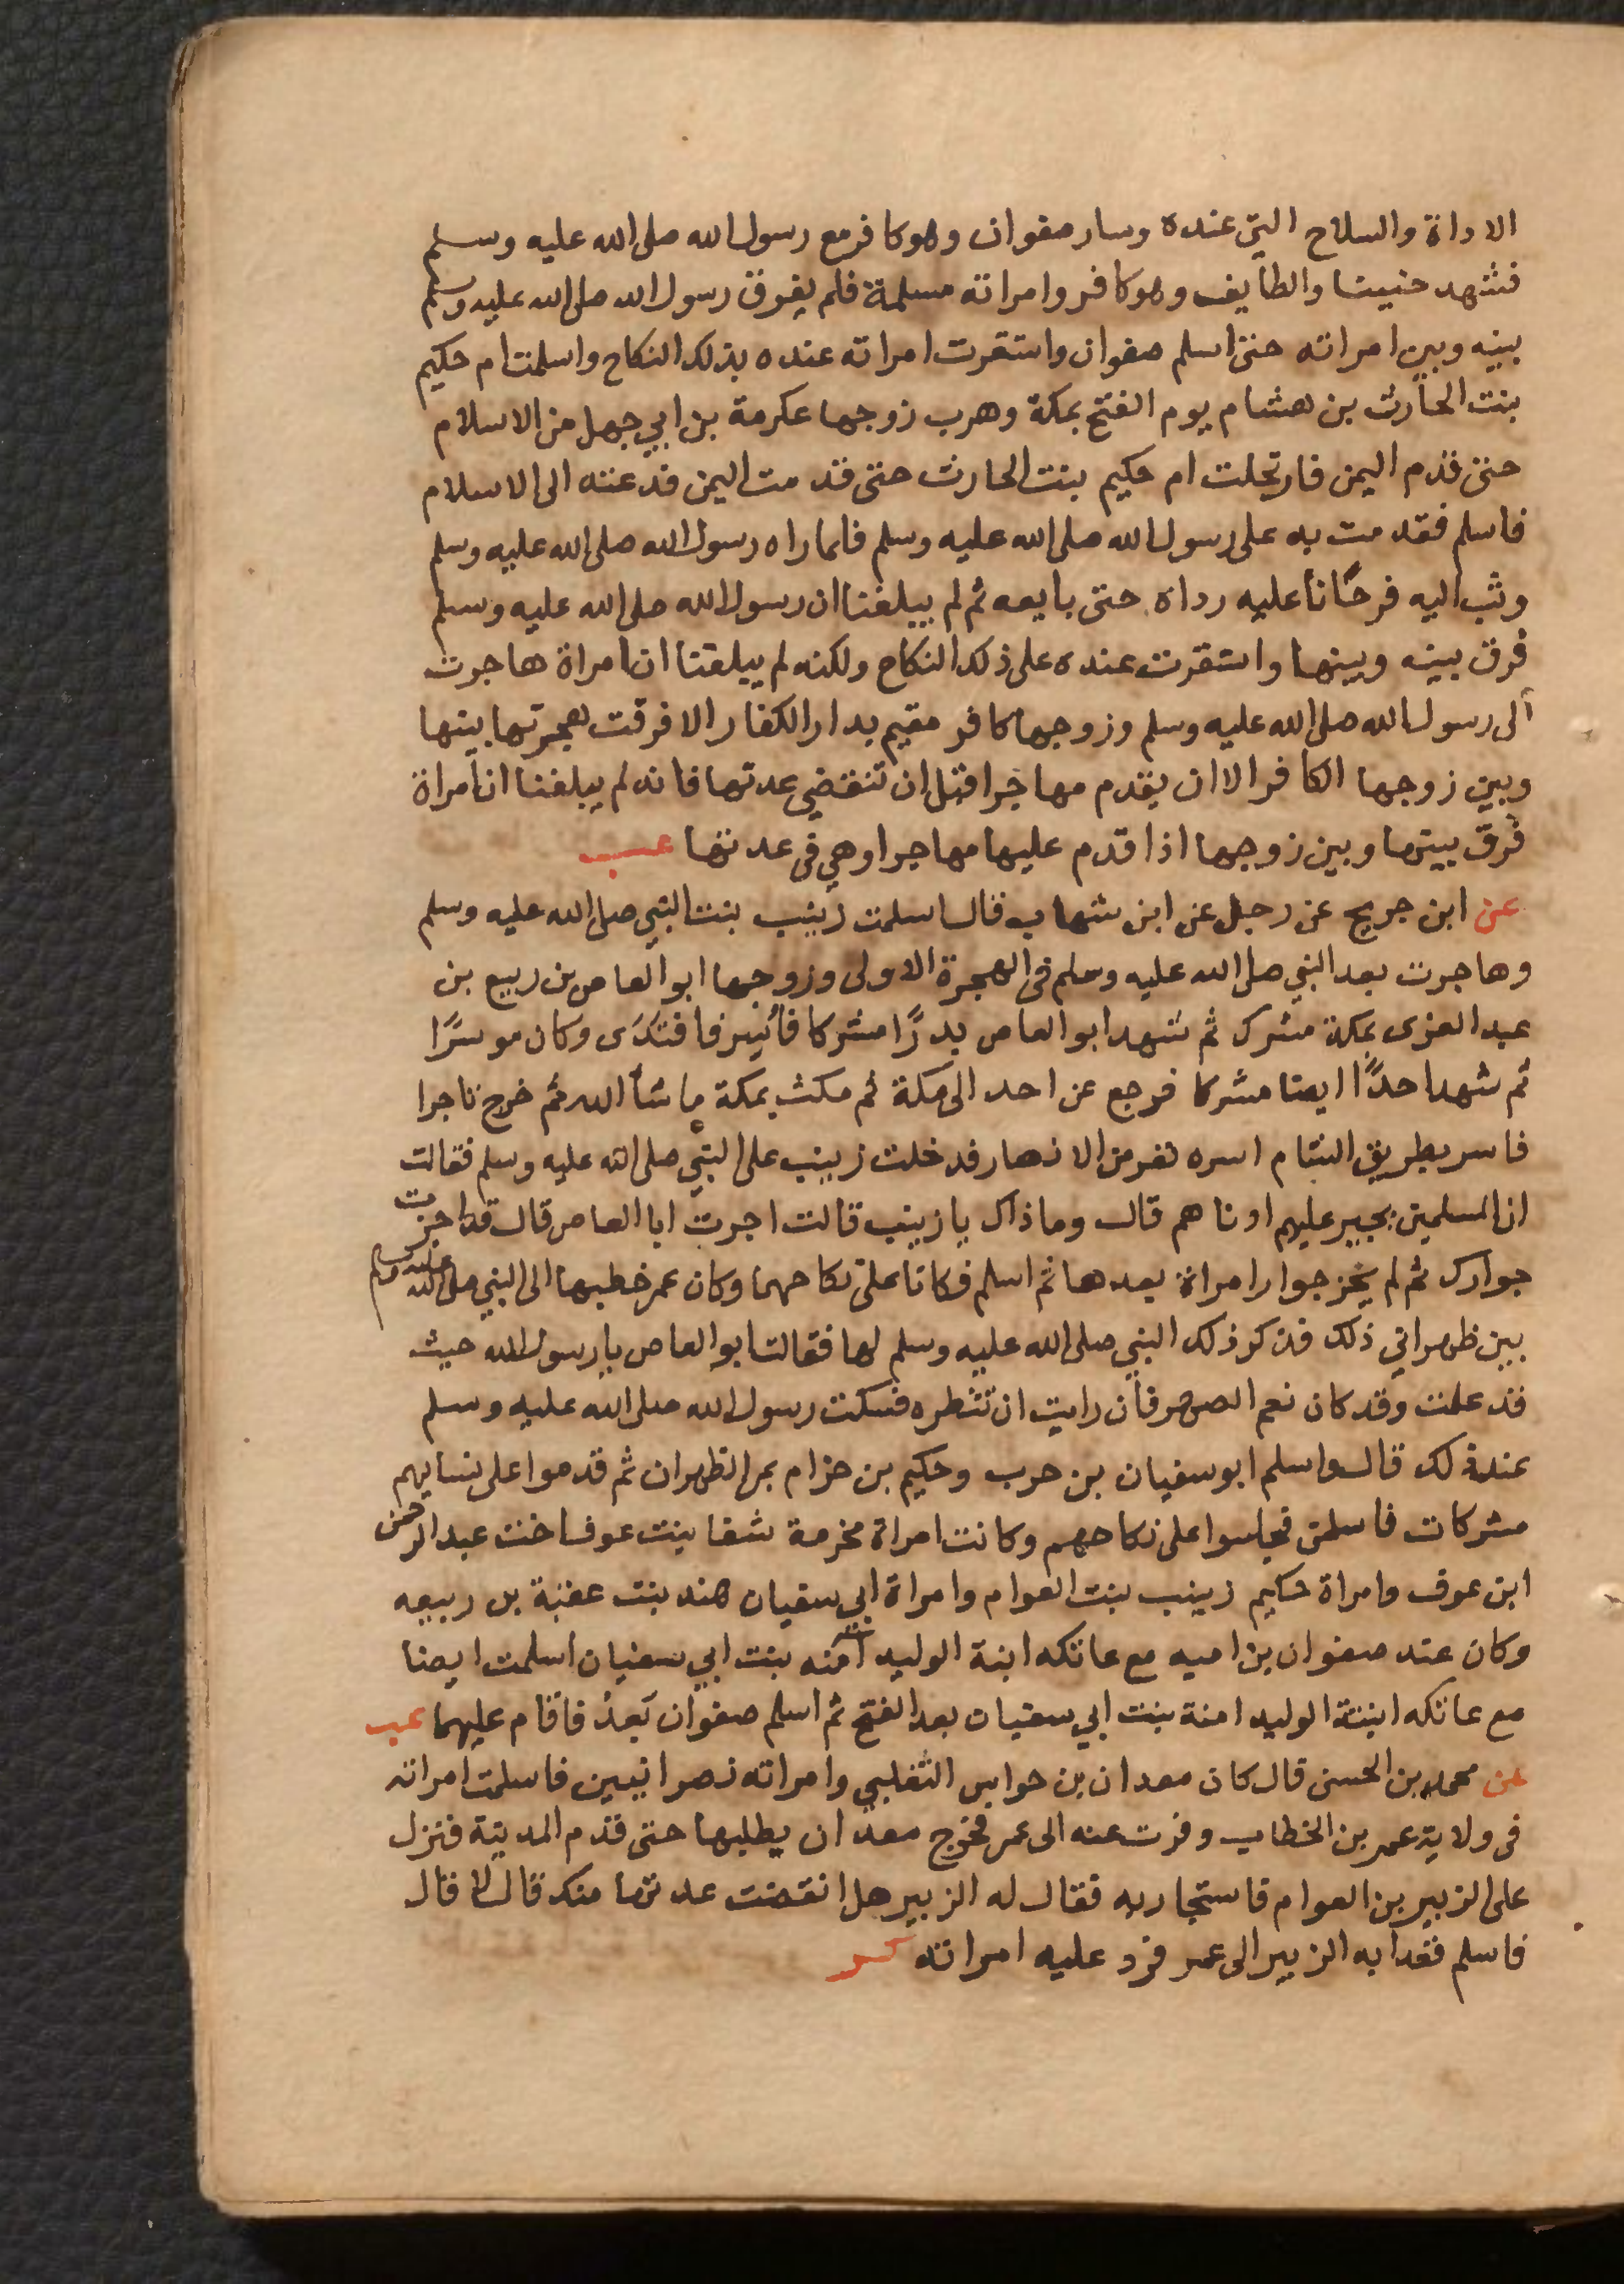 الاداة والسلاح التي عنده وسار صفوان وهو كافر مع رسول الله صلى الله عليه وسلم
فشهد حنينا والطايف وهو كافر وامراته مسلمة فلم يفرق رسول الله صلى الله عليه وسلم
بينه وبين امراته حتى اسلم صفوان واستقرت امراته عنده بذلك النكاح واسلمت ام حكيم
بنت الحارث بن هشام يوم الفتح بمكة وهرب زوجها عكرمة بن ابي جهل من الاسلام
حتى قدم اليمن فارتحلت ام حكيم بنت الحارث حتى قدمت اليمن فدعته الى الاسلام
فاسلم فقدمت به على رسول الله صلى الله عليه وسلم فلما راه رسول الله صلى الله عليه وسلم
وثب اليه فرحًانا عليه رداه حتى بايعه ثم لم يبلغنا ان رسول الله صلى الله عليه وسلم
فرق بينه وبينها واستقرت عنده على ذلك النكاح ولكنه لم يبلغنا ان امراة هاجرت
الى رسول الله صلى الله عليه وسلم وزوجها كافر مقيم بدار الكفار الا فرقت هجرتها بينها
وبين زوجها الكافر الا ان يقدم مهاجرا قبل ان تنقضي عدتها فانه لم يبلغنا ان امراة
فرق بينها وبين زوجها اذا قدم عليها مهاجرا وهي فى عدتها عب
عن ابن جريج عن رجل عن ابن شهاب قال اسلمت زينب بنت النبي صلى الله عليه وسلم
وهاجرت بعد النبي صلى الله عليه وسلم فى الهجرة الاولى وزوجها ابو العاص بن ربيع بن
عبد العزى بمكة مشرك ثم شهد ابو العاص بدرًا مشركا فأسر فافتدى وكان موسرًا
ثم شهد احدًا ايضا مشركا فرجع عن احد الى مكة ثم مكث بمكة ما شأ الله ثم خرج تاجرا
فاسر بطريق الشام اسره نفر من الانصار فدخلت زينب على النبي صلى الله عليه وسلم فقالت
ان المسلمين يجير عليهم ادناهم قال وماذاك يا زينب قالت اجرت ابا العاص قال قد اجزت
جوارك ثم لم يجز جوار امراة بعدها ثم اسلم فكانا على نكاحهما وكان عمر خطبها الى النبي صلى الله عليه وسلم
بين ظهراني ذلك فذكر ذلك النبي صلى الله عليه وسلم لها فقالت ابو العاص يا رسول الله حيث
قد علمت وقد كان نعم الصهر فان رايت ان تنتظره فسكت رسول الله صلى الله عليه وسلم
عند ذلك قال واسلم ابو سفيان بن حرب وحكيم بن حزام بمر الظهران ثم قدموا على نسايهم
مشركات فاسلمن فجلسوا على نكاحهم وكانت امراة مخرمة شفا بنت عوف اخت عبد الرحمن
ابن عوف وامراة حكيم زينب بنت العوام وامراة ابي سفيان هند بنت عتبة بن ربيعه
وكان عند صفوان بن اميه مع عاتكه ابنة الوليد آمنه بنت ابي سفيان اسلمت ايضا
مع عاتكه ابنتة الوليد امنة بنت ابي سفيان بعد الفتح ثم اسلم صفوان بَعدُ فاقام عليهما عب
عن محمد بن الحسن قال كان معدان بن حواس الثغلبي وامراته نصرانيين فاسلمت امراته
فى ولاية عمر بن الخطاب وفرت عنه الى عمر فخرج معدان يطلبها حتى قدم المدينة فنزل
على الزبير بن العوام فاستجار به فقال له الزبير هل انقضت عدتها منك قال لا قال
فاسلم فغدا به الزبير الى عمر فرد عليه امراته كر